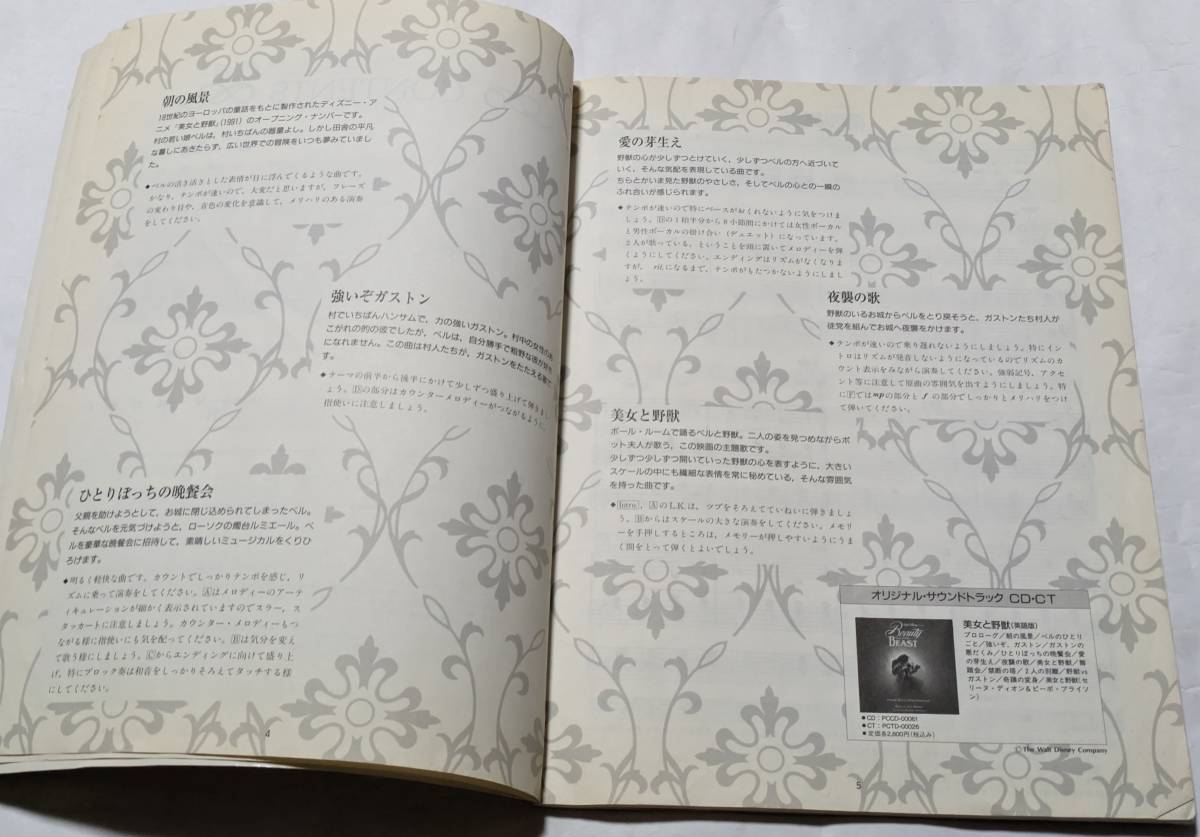 朝の風景
18世紀のヨーロッパの童話をもとに製作されたディズニー・ア
ニメ「美女と野獣」(1991) のオープニング・ナンバーです。
村の若い娘ベルは、村いちばんの器量よし。しかし田舎の平凡
な暮しにあきたらず、広い世界での冒険をいつも夢みていまし
た。
◆ベルの活き活きとした表情が目に浮んでくるような曲です。
かなり、テンポが速いので、大変だと思いますが、フレーズ
の変わり目や、音色の変化を意識して、メリハリのある演奏
をしてください。
強いぞガストン
村でいちばんハンサムで、力の強いガストン。村中の女性のあ
こがれの的の彼でしたが、ベルは、自分勝手で粗野な彼が好き
になれません。この曲は村人たちが、ガストンをたたえる歌で
す。
◆テーマの前半から後半にかけて少しずつ盛り上げて弾きまし
ょう。Dの部分はカウンターメロディーがつながるように、
指使いに注意しましょう。
ひとりぼっちの晩餐会
父親を助けようとして、お城に閉じ込められてしまったベル。
そんなベルを元気づけようと、ローソクの燭台ルミエール。ベ
ルを豪華な晩餐会に招待して、素晴しいミュージカルをくりひ
ろげます。
◆明るく軽快な曲です。カウントでしっかりテンポを感じ、リ
ズムに乗って演奏をしてください。Aはメロディーのアーテ
ィキュレーションが細かく表示されていますのでスラー、ス
タッカートに注意しましょう。カウンター・メロディーもつ
ながる様に指使いにも気を配ってください。Bは気分を変え
て歌う様にしましょう。Cからエンディングに向けて盛り上
げ、特にブロック奏は和音をしっかりそろえてタッチする様
にしてください。
4
愛の芽生え
野獣の心が少しずつとけていく、少しずつベルの方へ近づいて
いく、そんな気配を表現している曲です。
ちらとかいま見た野獣のやさしさ、そしてベルの心との一瞬の
ふれ合いが感じられます。
◆テンポが速いので特にベースがおくれないように気をつけま
しょう。Dの1拍半分から8小節間にかけては女性ボーカル
と男性ボーカルの掛け合い（デュエット）になっています。
2人が歌っている、ということを頭に置いてメロディーを弾
くようにしてください。エンディングはリズムがなくなりま
すが、rit.になるまで、テンポがもたつかないようにしまし
ょう。
夜襲の歌
野獣のいるお城からベルをとり戻そうと、ガストンたち村人が
徒党を組んでお城へ夜襲をかけます。
◆テンポが速いので乗り遅れないようにしましょう。特にイン
トロはリズムが発音しないようになっているのでリズムのカ
ウント表示をみながら演奏してください。強弱記号、アクセ
ント等に注意して原曲の雰囲気を出すようにしましょう。特
にFではmpの部分とfの部分でしっかりとメリハリをつけ
て弾いてください。
美女と野獣
ボール・ルームで踊るベルと野獣。二人の姿を見つめながらポ
ット夫人が歌う、この映画の主題歌です。
少しずつ少しずつ開いていった野獣の心を表すように、大きい
スケールの中にも繊細な表情を常に秘めている、そんな雰囲気
を持った曲です。
◆Intro.、AのL.K.は、ツブをそろえてていねいに弾きましょ
う。Bからはスケールの大きな演奏をしてください。メモリ
ーを手押しするところは、メモリーが押しやすいようにうま
く間をとって弾くとよいでしょう。
オリジナル・サウンドトラック CD・CT
Beauty
BEAST
美女と野獣(英語版)
プロローグ／朝の風景／ベルのひとり
ごと／強いぞ、ガストン／ガストンの
悪だくみ／ひとりぼっちの晩餐会／愛
の芽生え／夜襲の歌／美女と野獣／舞
踏会／禁断の塔／2人の別離／野獣vs
ガストン／奇蹟の変身／美女と野獣(セ
リーヌ・ディオン＆ピーボ・ブライソ
ン)
●CD：PCCD-00061
●CT：PCTD-00026
●定価各2,800円(税込み)
© The Walt Disney Company
5